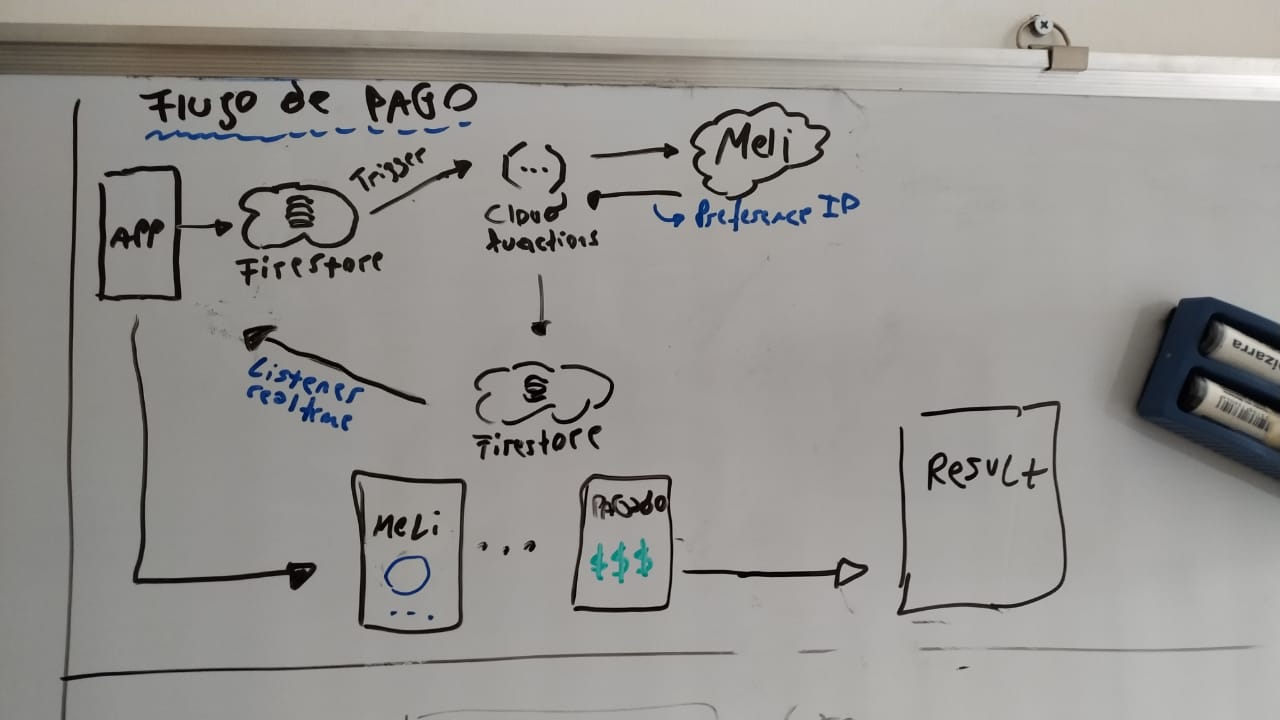 Flujo de PAGO
APP
Firestore
Trigger
(...)
Cloud
functions
Meli
Preference ID
Listener
realtime
Firestore
MeLi
...
...
PAGADO
$$$
Result